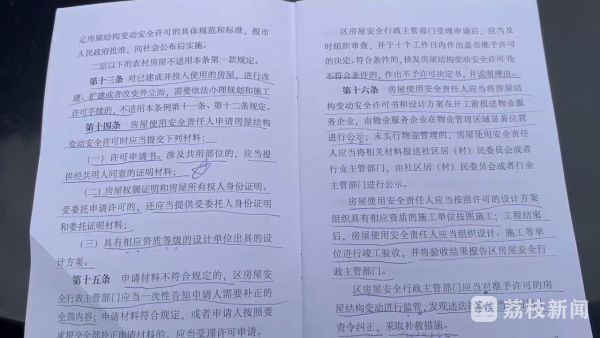 定房屋结构变动安全许可的具体规范和标准，报市
人民政府批准，向社会公布后实施。
二层以下的农村房屋不适用本条第一款规定。
第十三条 对已建成并投入使用的房屋，进行改
建、扩建或者改变外立面，需要依法办理规划和施工
许可手续的，不适用本条例第十一条、第十二条规定。
第十四条 房屋使用安全责任人申请房屋结构
变动安全许可时应当提交下列材料：
（一）许可申请书。涉及共用部位的，应当提
供经共用人同意的证明材料；
（二）房屋权属证明和房屋所有权人身份证明。
受委托申请许可的，还应当提供受委托人身份证明
和委托证明材料；
（三）具有相应资质等级的设计单位出具的设
计方案。
第十五条 申请材料不符合规定的，区房屋安
全行政主管部门应当一次性告知申请人需要补正的
全部内容；申请材料符合规定，或者申请人按照要
求提交全部补正申请材料的，应当受理许可申请。
区房屋安全行政主管部门受理申请后，应当及
时组织审查，并于十个工作日内作出是否准予许可
的决定。符合条件的，核发房屋结构变动安全许可书；
不符合条件的，作出不予许可决定书，并说明理由。
第十六条 房屋使用安全责任人应当将房屋结
构变动安全许可书和设计方案在开工前报送物业服
务企业，由物业服务企业在物业管理区域显著位置
进行公示；未实行物业管理的，房屋使用安全责任
人应当将相关材料报送社区居（村）民委员会或者
行业主管部门，由社区居（村）民委员会或者行业
主管部门进行公示。
房屋使用安全责任人应当按照许可的设计方案
组织具有相应资质的施工单位按图施工；工程结束
后，房屋使用安全责任人应当组织设计、施工等单
位进行竣工验收，并将验收结果报告区房屋安全行
政主管部门。
区房屋安全行政主管部门应当对准予许可的房
屋结构变动进行监管，发现违法
责令纠正，采取补救措施。
荔枝新闻